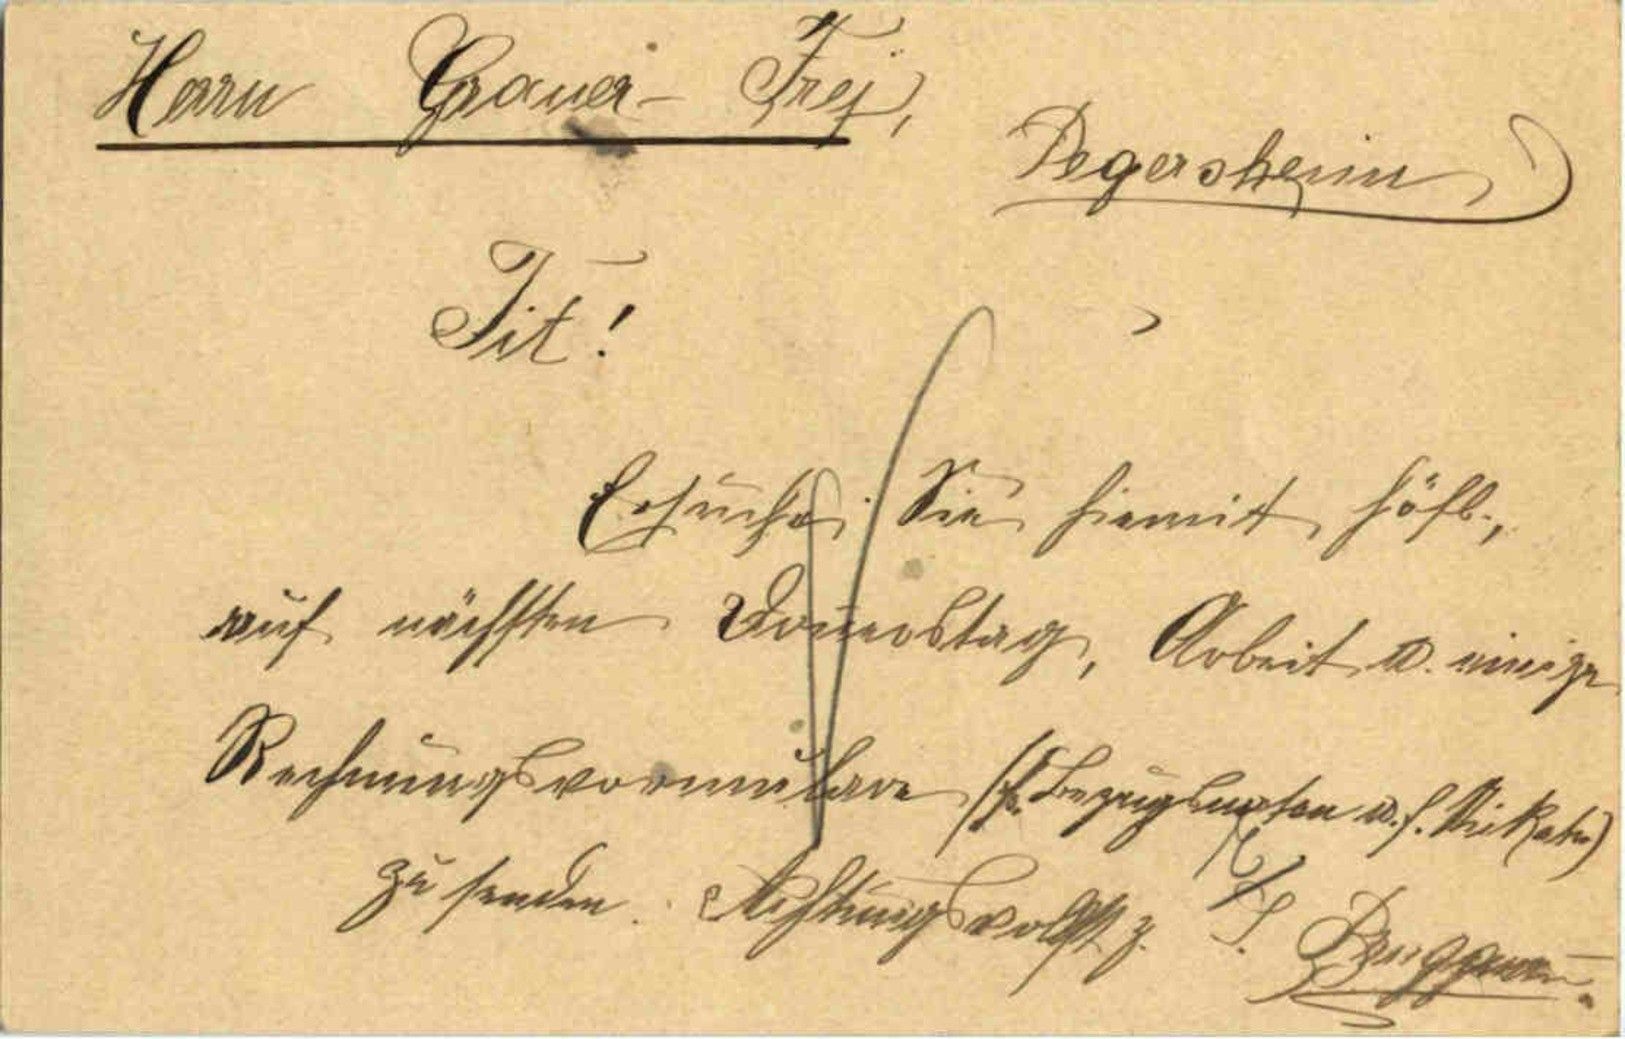 Herrn Grauer-Frej,
Degersheim
Tit!
Ersuche Sie hiemit höfl.,
auf nächsten Donnerstag, Arbeit u. einige
Rechnungsvormulare (f.
zu senden. Achtungsvollst z.
J. Bruggmann.